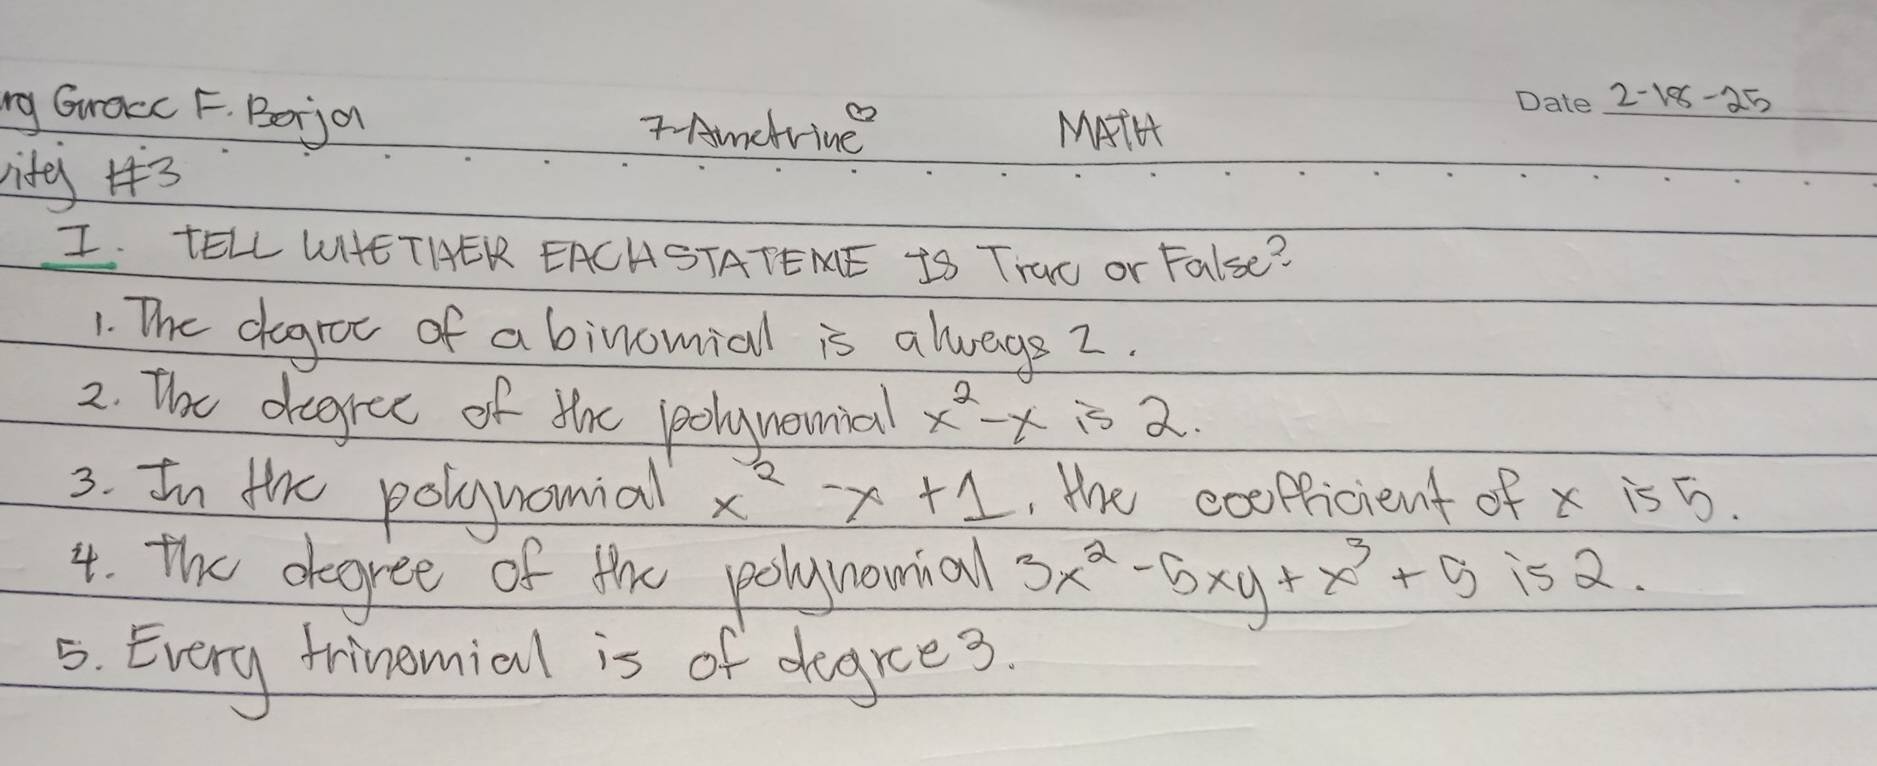 Grace F. Borja 7-Ametrine MATH Date 2-18-25
#3
I. TELL WHETHER EACH STATEME IS True or False?
1. The degree of a binomial is always 2.
2. The degree of the polynomial x²-x is 2.
3. In the polynomial x² -x +1, the coefficient of x is 5.
4. The degree of the polynomial 3x² - 5xy + x³ + 5 is 2.
5. Every trinomial is of degree 3.